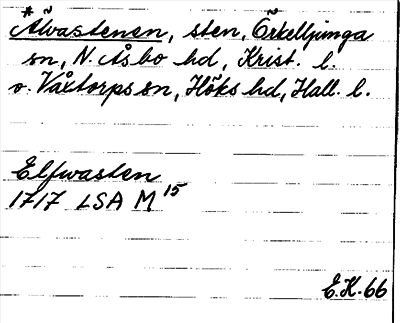 *Älvastenen, sten, Örkelljunga
sn, N. Åsbo hd, Krist. l.
o. Våxtorps sn, Höks hd, Hall. l.
Elfwasten
1717 LSA M 15
E.K. 66